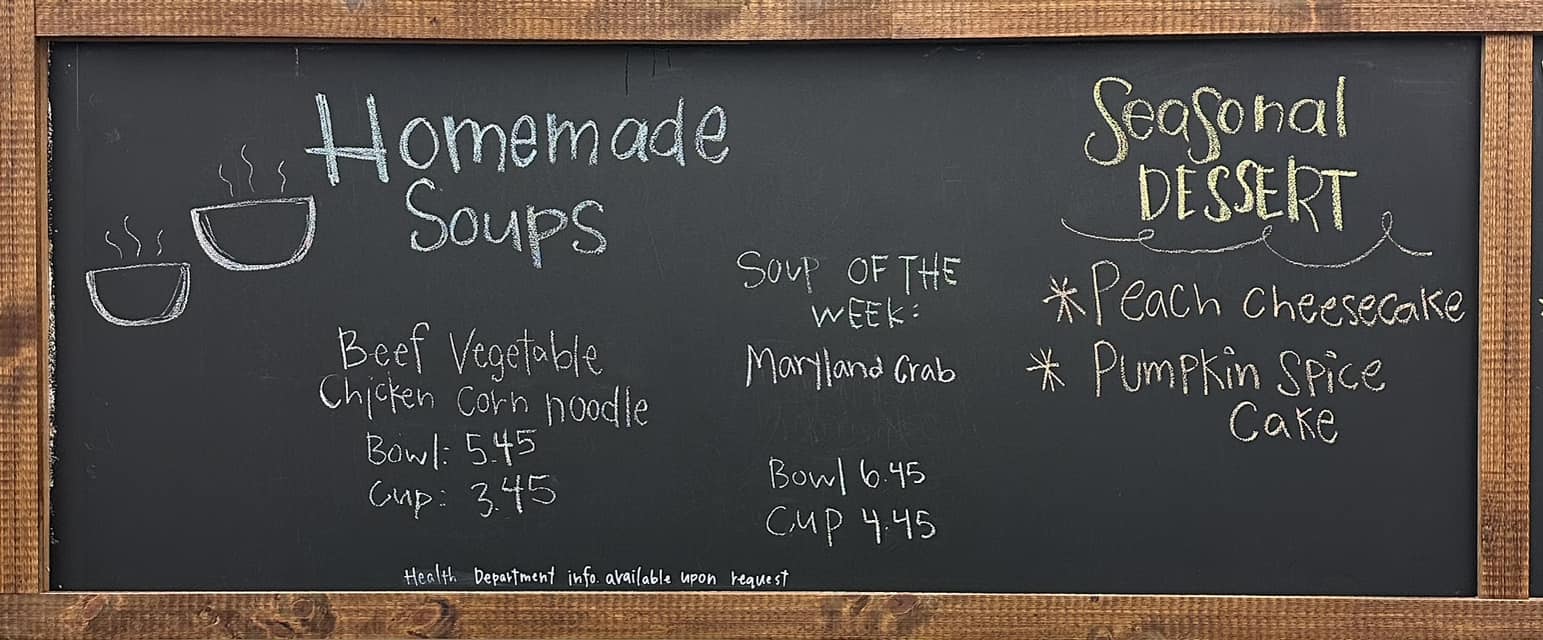 Homemade
Soups
Beef Vegetable
Chicken Corn noodle
Bowl: 5.45
Cup: 3.45
SOUP OF THE
WEEK:
Maryland Crab
Bowl 6.45
CUP 4.45
Seasonal
DESSERT
* Peach cheesecake
* Pumpkin Spice
Cake
Health Department info. available upon request